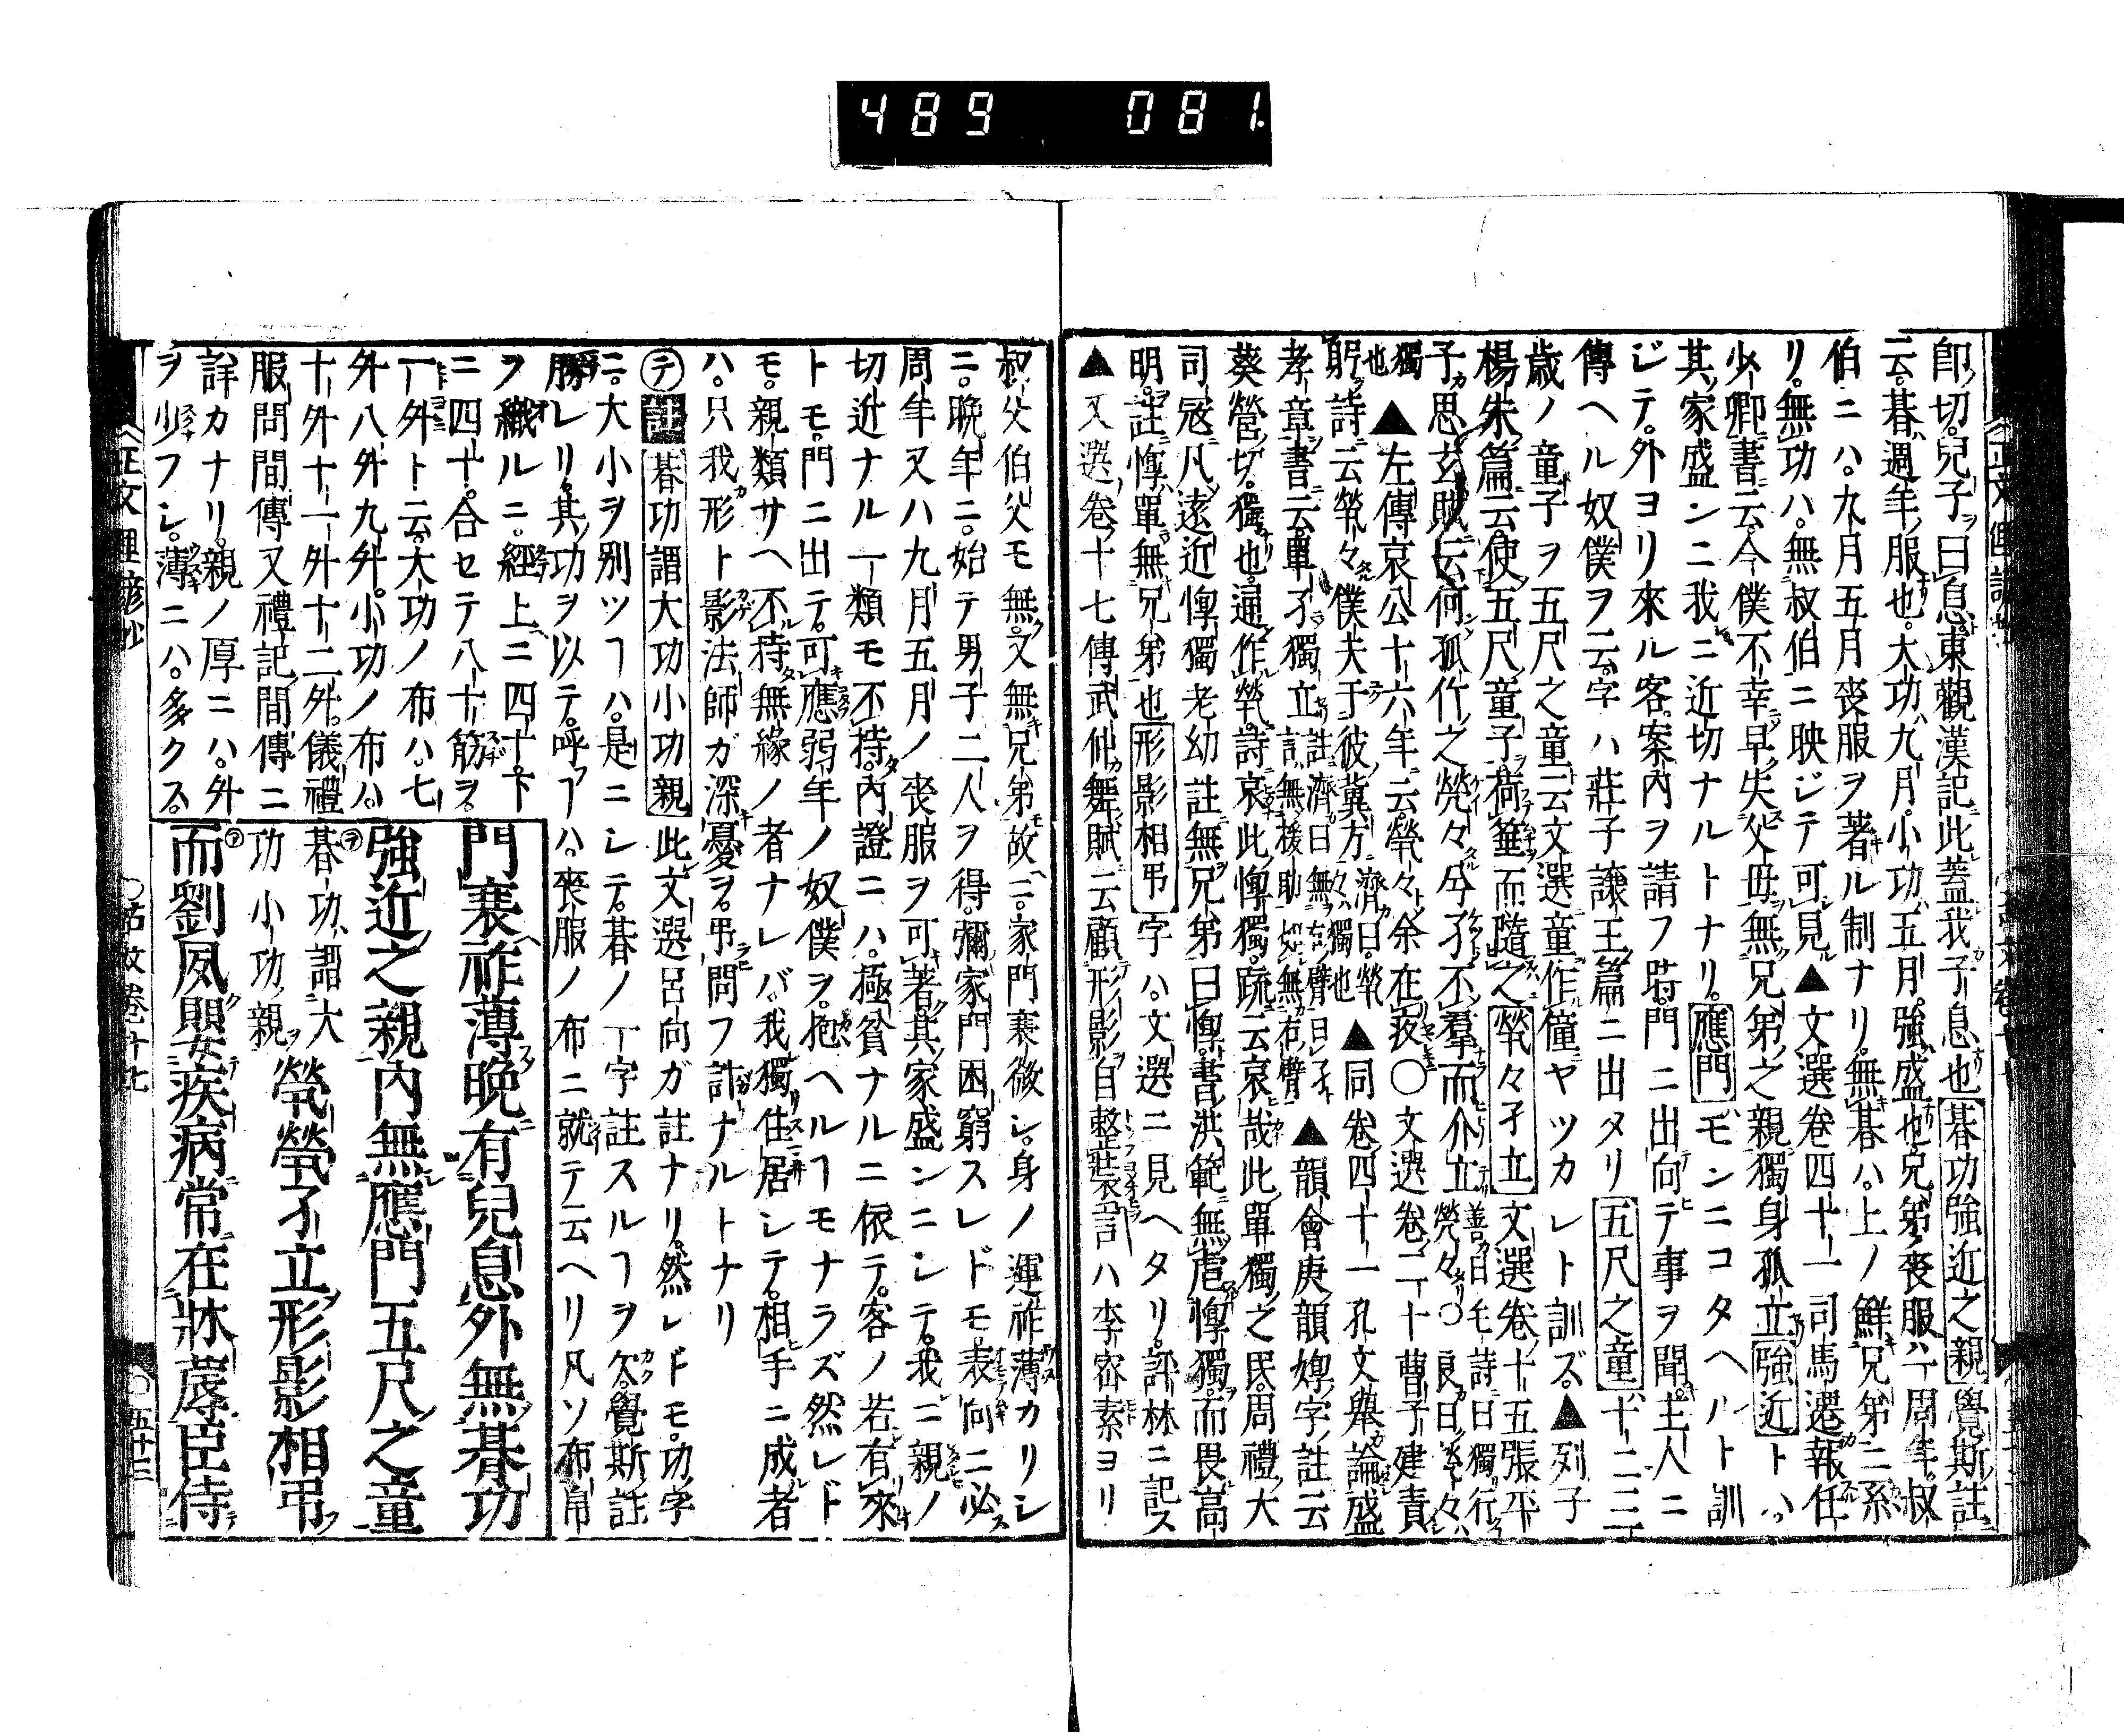 489 081
卽切兒子曰息東觀漢記此蓋我子息也朞功強近之親覺斯註
云朞週年服也大功九月小功五月強盛也兄弟喪服ハ一周年叔
伯ニハ九月五月喪服ヲ著ル制ナリ無朞ハ上ノ鮮兄弟ニ系
リ無功ハ無叔伯ニ映ジテ可見▲文選卷四十一司馬遷報任
少卿書云今僕不幸早失父母無兄弟之親獨身孤立強近トハ
其家盛ンニ我ニ近切ナルトナリ應門モンニコタヘルト訓
ジテ外ヨリ來ル客案内ヲ請フ時門ニ出向テ事ヲ聞主人ニ
傳ヘル奴僕ヲ云字ハ莊子讓王篇ニ出タリ五尺之童十二三
歲ノ童子ヲ五尺之童ト云文選童作僮ヤツカレト訓ズ▲列子
楊朱篇云使五尺童子荷箠而隨之煢々孑立文選卷十五張平
子思玄賦云何孤竹之煢々兮孑不羣而介立善曰毛詩曰獨行煢々○良曰煢々ハ
獨也▲左傳哀公十六年云煢々余在疚○文選卷二十曹子建責
躬詩云煢々僕夫于彼冀方濟曰煢々獨也▲同卷四十一孔文舉論盛
孝章書云單孑獨立言無援助▲韻會庚韻惸字註云
葵營切獨也通作煢詩哀此惸獨疏云哀哉此單獨之民周禮大
司寇凡遠近惸獨老幼註無兄弟曰惸書洪範無虐惸獨而畏高
明註惸單無兄弟也形影相弔字ハ文選ニ見ヘタリ評林ニ記ス
▲又選卷十七傳武仲舞賦云顧形影自整裝言ハ李密素ヨリ
叔父伯父モ無又無兄弟故ニ家門衰微シ身ノ運祚薄カリシ
ニ晩年ニ始テ男子二人ヲ得彌家門困窮スレドモ表向ニ必
周年又ハ九月五月ノ喪服ヲ可著其家盛ンニシテ我ニ親ノ
切近ナル一類モ不持内證ニハ極貧ナルニ依テ客ノ若有來
トモ門ニ出テ可應弱年ノ奴僕ヲ抱ヘルヿモナラズ然レド
モ親類サヘ不持無緣ノ者ナレバ我獨住居シテ相手ニ成者
ハ只我形ト影法師ガ深憂ヲ弔問フ計ナルトナリ
テ註朞功謂大功小功親此文選呂向ガ註ナリ然レドモ功字
ニ大小ヲ別ツヿハ是ニシテ朞ノ一字註スルヿヲ欠覺斯註
勝レリ其功ヲ以テ呼フヿハ喪服ノ布ニ就テ云ヘリ凡ソ布帛
ヲ織ルニ經上ニ四十下
ニ四十合セテ八十筋ヲ
一升ト云大功ノ布ハ七
升八升九升小功ノ布ハ
十升十一升十二升儀禮
服問間傳又禮記間傳ニ
詳カナリ親ノ厚ニハ升
ヲ少フシ薄ニハ多クス
門衰祚薄晚有兒息外無朞功
強近之親內無應門五尺之童
テ朞功謂大功小功親
煢煢孑立形影相弔
テ而劉夙嬰疾病常在牀蓐臣侍
古文卷十七
五十三